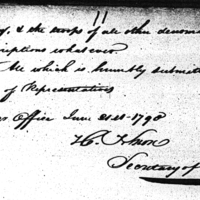 11
y, & the troops of all other denom
criptions whatever.
All which is humbly submit
of Representatives
Office June 21st 1790
H. Knox
Secretary of